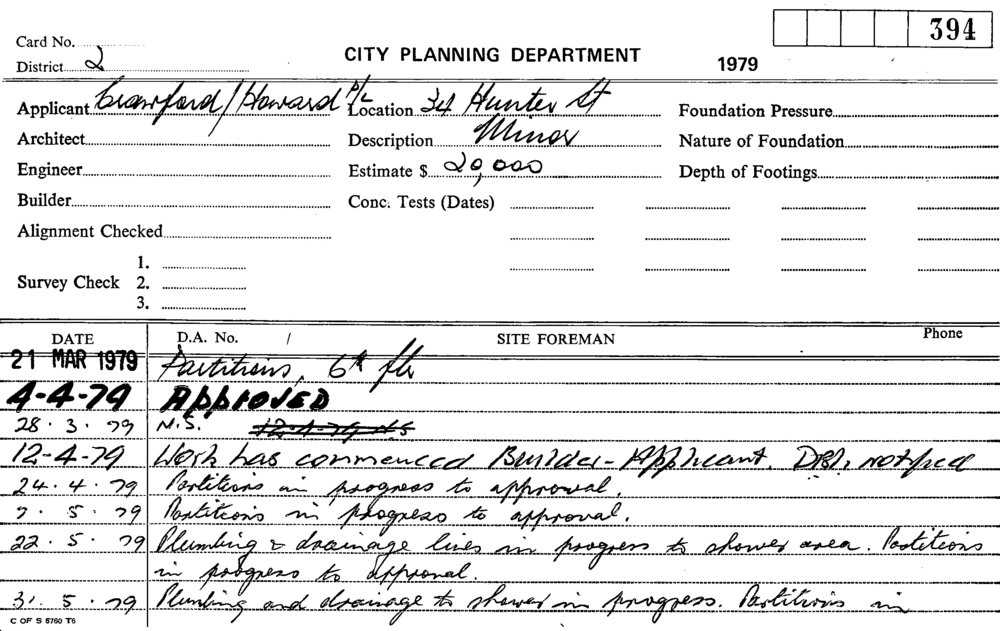 394
Card No.
CITY PLANNING DEPARTMENT 1979
District 2
Applicant Crawford/Howard P/L Location 34 Hunter St Foundation Pressure
Architect Description Minor Nature of Foundation
Engineer Estimate $ 20,000 Depth of Footings
Builder Conc. Tests (Dates)
Alignment Checked
1.
Survey Check 2.
3.
DATE D.A. No. / SITE FOREMAN Phone
21 MAR 1979 Partitions, 6th flr
4-4-79 APPROVED
28.3.79 N.S. 12-4-79 NS
12-4-79 Work has commenced Builder - Applicant. notified
24.4.79 Partitions in progress to approval.
7.5.79 Partitions in progress to approval.
22.5.79 Plumbing & drainage lines in progress to shower area. Partitions
in progress to approval.
31.5.79 Plumbing and drainage to shower in progress. Partitions in
C OF S 6760 T6